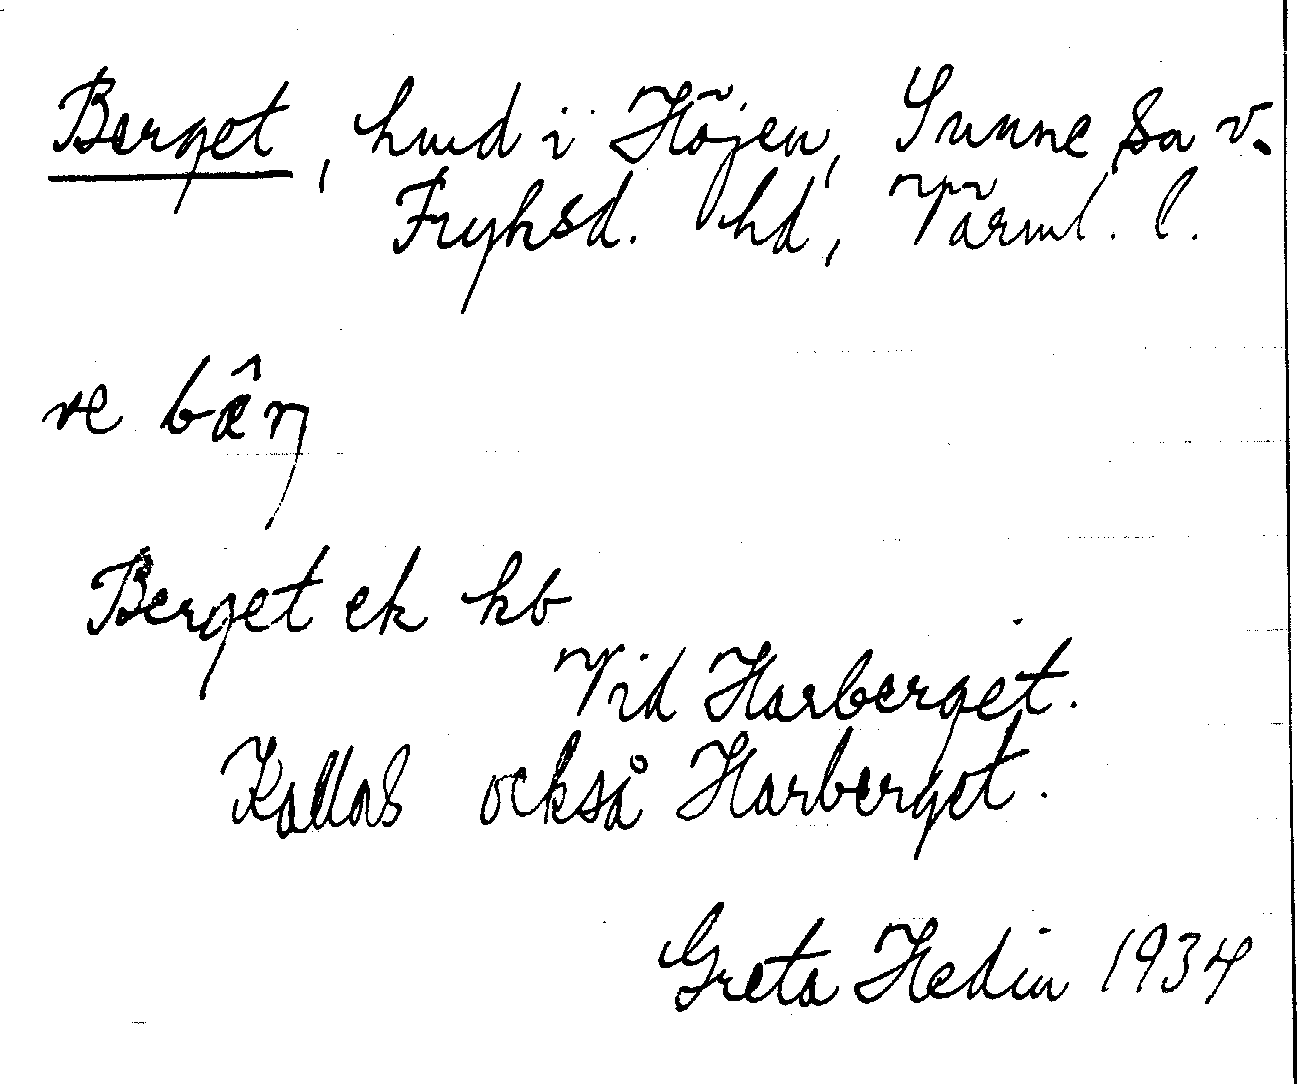 Berget, hmd i Höjen, Sunne sn v.
Fryksd. hd, Värml. l.
ve bæ̂rj
Berget ek kb
Vid Harberget.
Kallas också Harberget.
Greta Hedin 1934